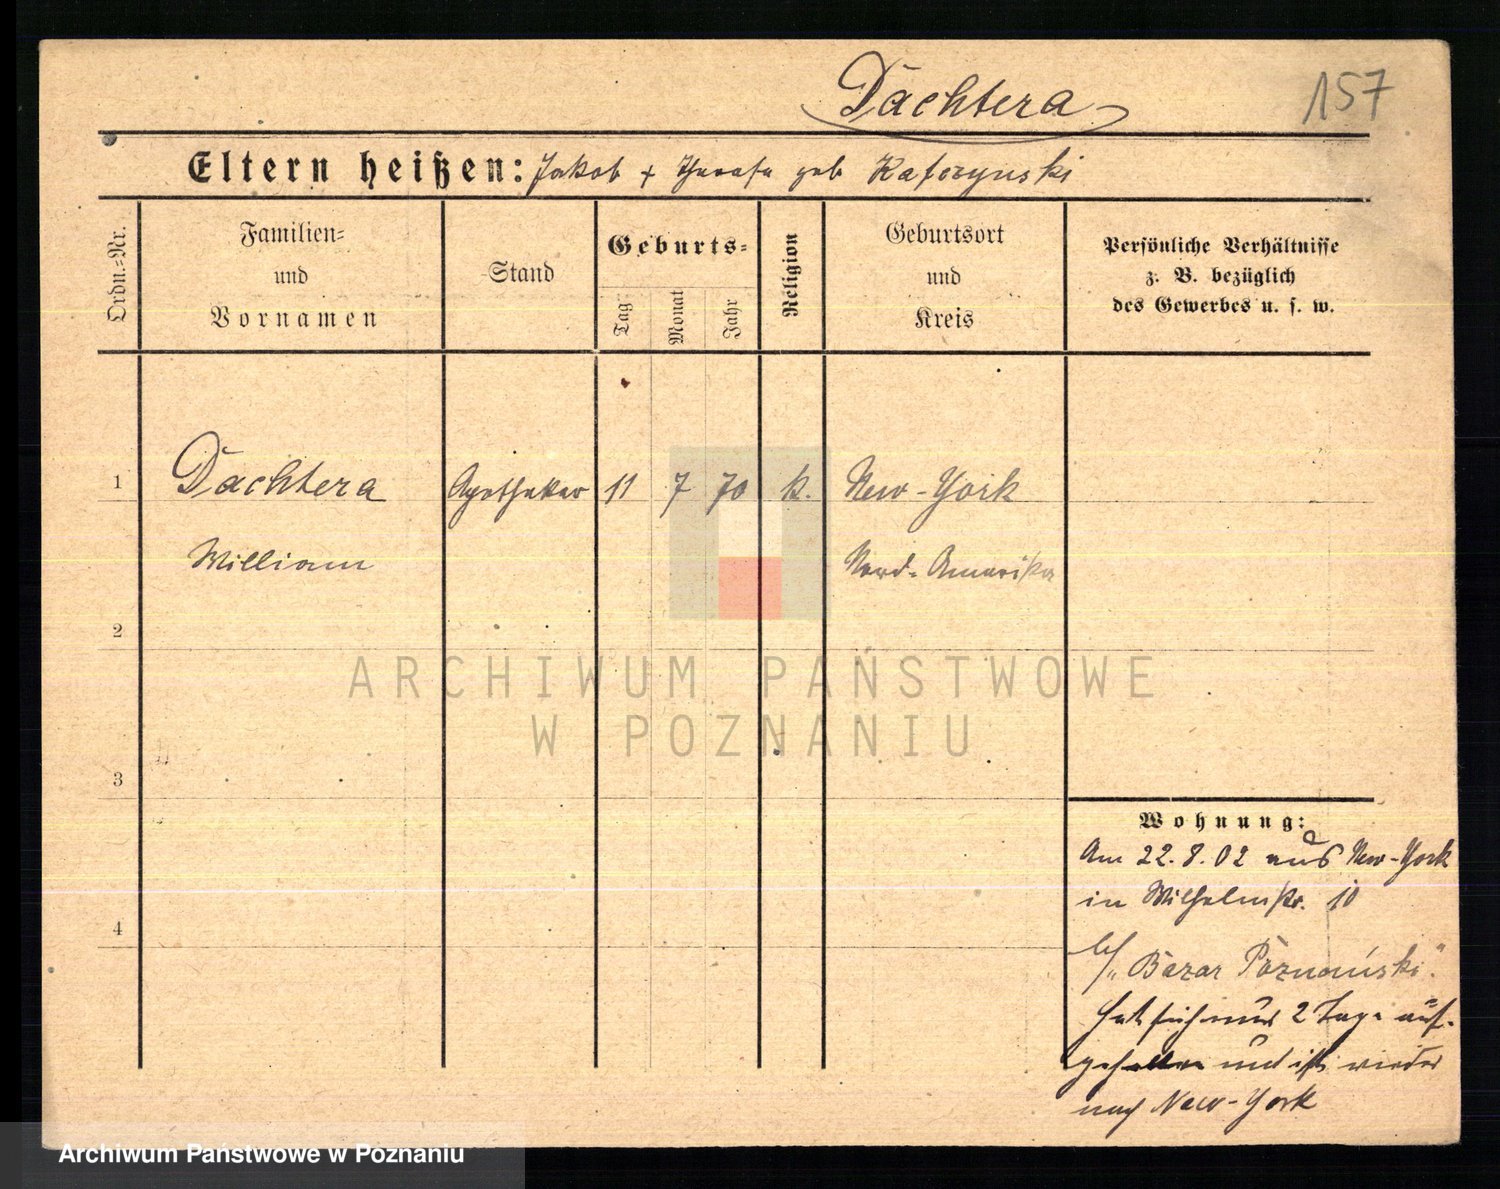 Dachtera
157
Eltern heißen: Jakob + Therese geb Katczynski
Ordn.=Nr.
Familien=
und
Vornamen
Stand
Geburts=
Tag
Monat
Jahr
Religion
Geburtsort
und
Kreis
Persönliche Verhältnisse
z. B. bezüglich
des Gewerbes u. s. w.
1 Dachtera Apotheker 11 7 70 k. New-York
William Nord-Amerika
2
3
4
Wohnung:
Am 22.8.02 aus New-York
in Wilhelmstr. 10
b/ "Bazar Poznański".
Hat sich nur 2 Tage auf-
gehalten und ist wieder
nach New-York
ARCHIWUM PAŃSTWOWE
W POZNANIU
Archiwum Państwowe w Poznaniu